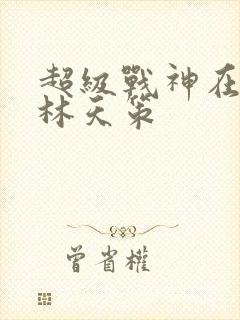 超級戰神在
林天策
曾省權